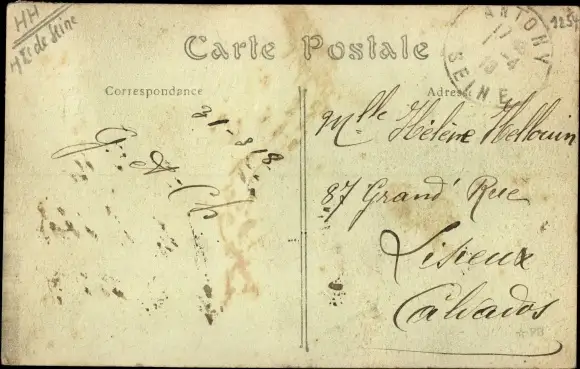 HH
Hts de Seine
1254
Carte Postale
ANTONY
17
4
13
SEINE
Correspondance
Adresse
31-3-13
G. A. Ch
Mlle Hélène Hellouin
87 Grand' Rue
Lisieux
Calvados